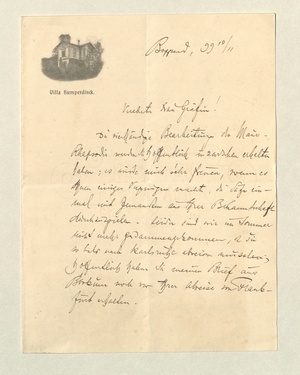 Villa Humperdinck.
Boppard, 29 10/11
Verehrte Frau Gräfin!
Die vierhändige Bearbeitung der Mauri-
Rhapsodie werden Sie hoffentlich inzwischen erhalten
haben; es würde mich sehr freuen, wenn es
Ihnen einiges Vergnügen macht, die
mal mit Jemanden aus Ihrer Bekanntschaft
Leider sind wir im Sommer
nicht mehr zusammengekommen, da
nach Karlsruhe
Hoffentlich haben Sie meinen Brief aus
Borkum noch vor Ihrer Abreise von Frank-
furt erhalten.